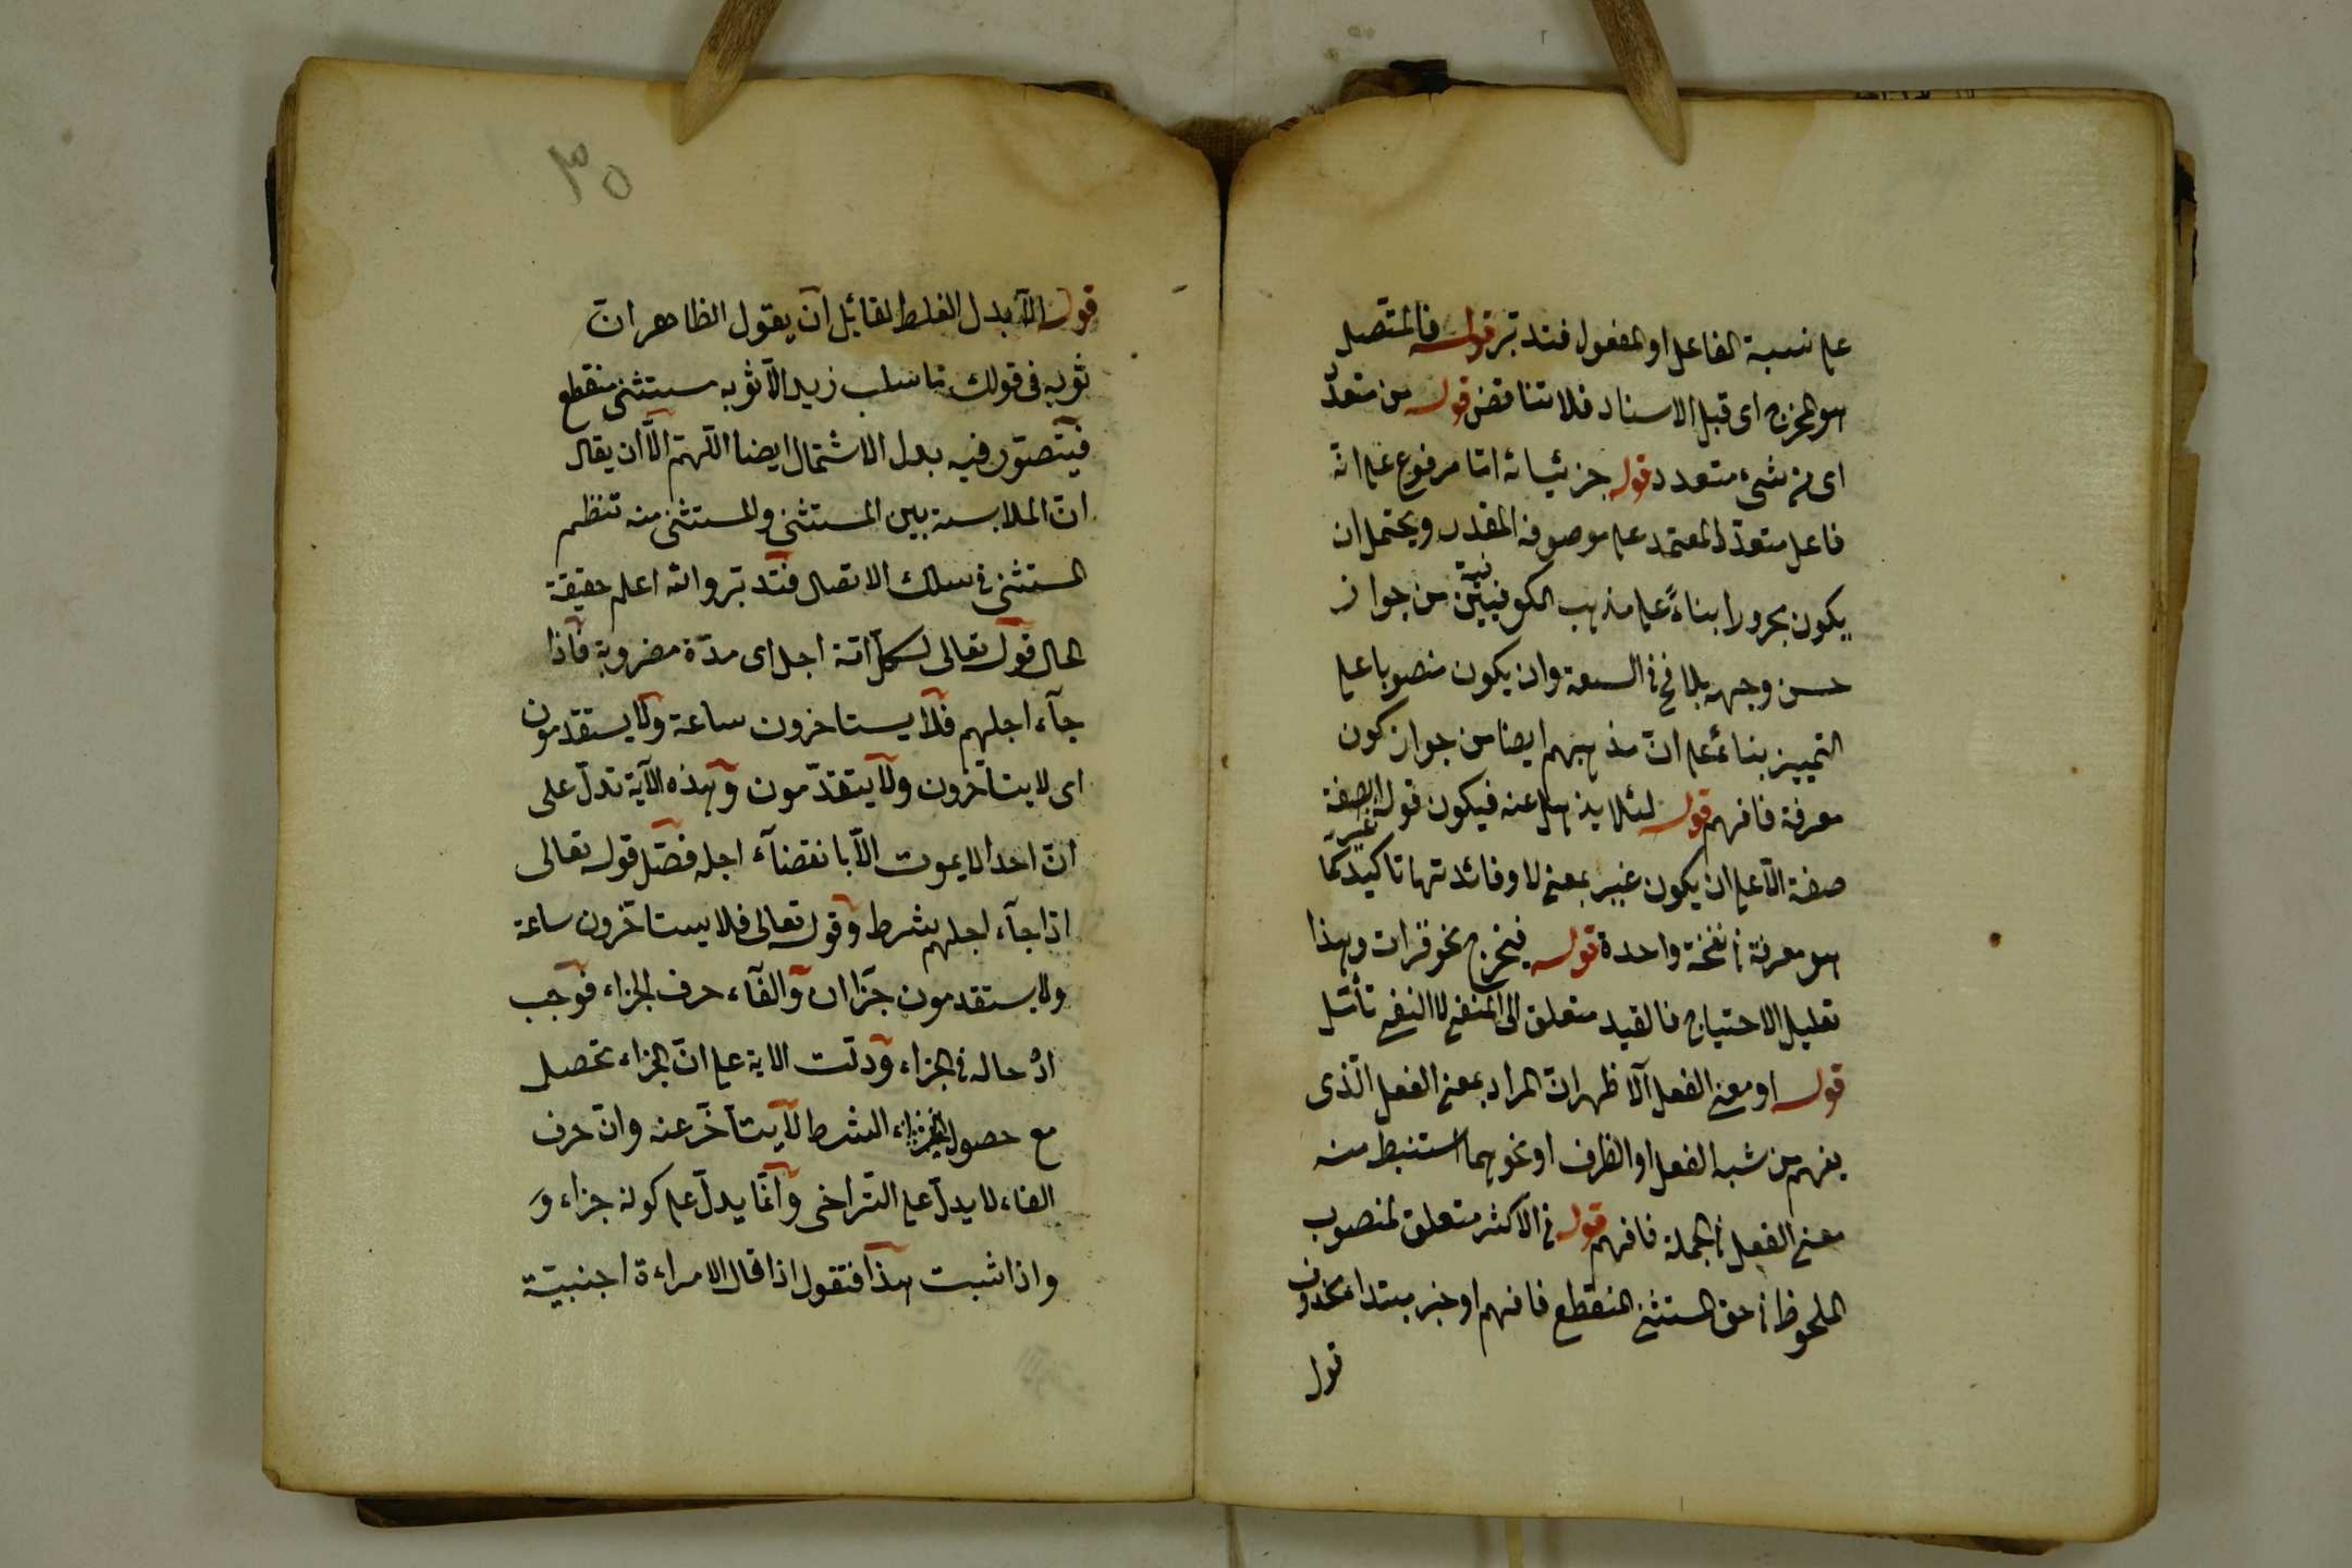 على نسبة الفاعل او المفعول فتدبر قوله فالمتصل
هو المخرج اى قبل الاسناد فلا تناقض قوله من متعدد
اى من شىء متعدد قوله جزئياته اما مرفوع على انه
فاعل متعدد المعتمد على موصوفه المقدر ويحتمل ان
يكون مجرورا بناءً على مذهب الكوفيين من جواز
حسن وجهه بلا قبح فى السعة وان يكون منصوبا على
التمييز بناءً على انّ مذهبهم ايضا من جواز كون
معرفة فافهم قوله لئلا يذهل عنه فيكون قوله الصفة
صفة الّا على ان يكون غير بمعنى لا وفائدتها تاكيد كما
هو معرفة فى نفخة واحدة قوله فيخرج نحو قرات وهذا
تعليل الاحتياج فالقيد متعلق الى المنفى لا النفى تأمّل
قوله او معنى الفعل الاظهر ان المراد بمعنى الفعل الّذى
يفهم من شبه الفعل او الظرف او نحوهما استنبط منه
معنى الفعل فى الجملة فافهم قوله فى الاكثر متعلق لمنصوب
الملحوظ فى حق المستثنى المنقطع فافهم او خبر مبتداء محذوف
قوله
٣٥
قوله الّا بدل الغلط لقائل ان يقول الظاهر انّ
ثوبه فى قولك ما سلب زيد الّا ثوبه مستثنى منقطع
فيتصوّر فيه بدل الاشتمال ايضا اللّهمّ الّا ان يقال
انّ الملابسة بين المستثنى والمستثنى منه تنظم
المستثنى فى سلك الاتصال فتدبّر والله اعلم حقيقة
الحال قوله تعالى لكلّ امّة اجل اى مدّة مضروبة فاذا
جآء اجلهم فلا يستاخرون ساعة ولا يستقدمون
اى لا يتأخّرون ولا يتقدّمون وهذه الآية تدلّ على
انّ احدا لا يموت الّا بانقضآء اجله فصّل قوله تعالى
اذا جآء اجلهم شرط وقوله تعالى فلا يستاخرون ساعة
ولا يستقدمون جزاان والفآء حرف الجزاء فوجب
ادخاله فى الجزاء ودلّت الاية على انّ الجزاء تحصل
مع حصول الشرط لا يتأخّر عنه وانّ حرف
الفاء لا يدلّ على التّراخى وانّما يدلّ على كونه جزاء و
واذا ثبت هذا فنقول اذا قال لامراءة اجنبيّة